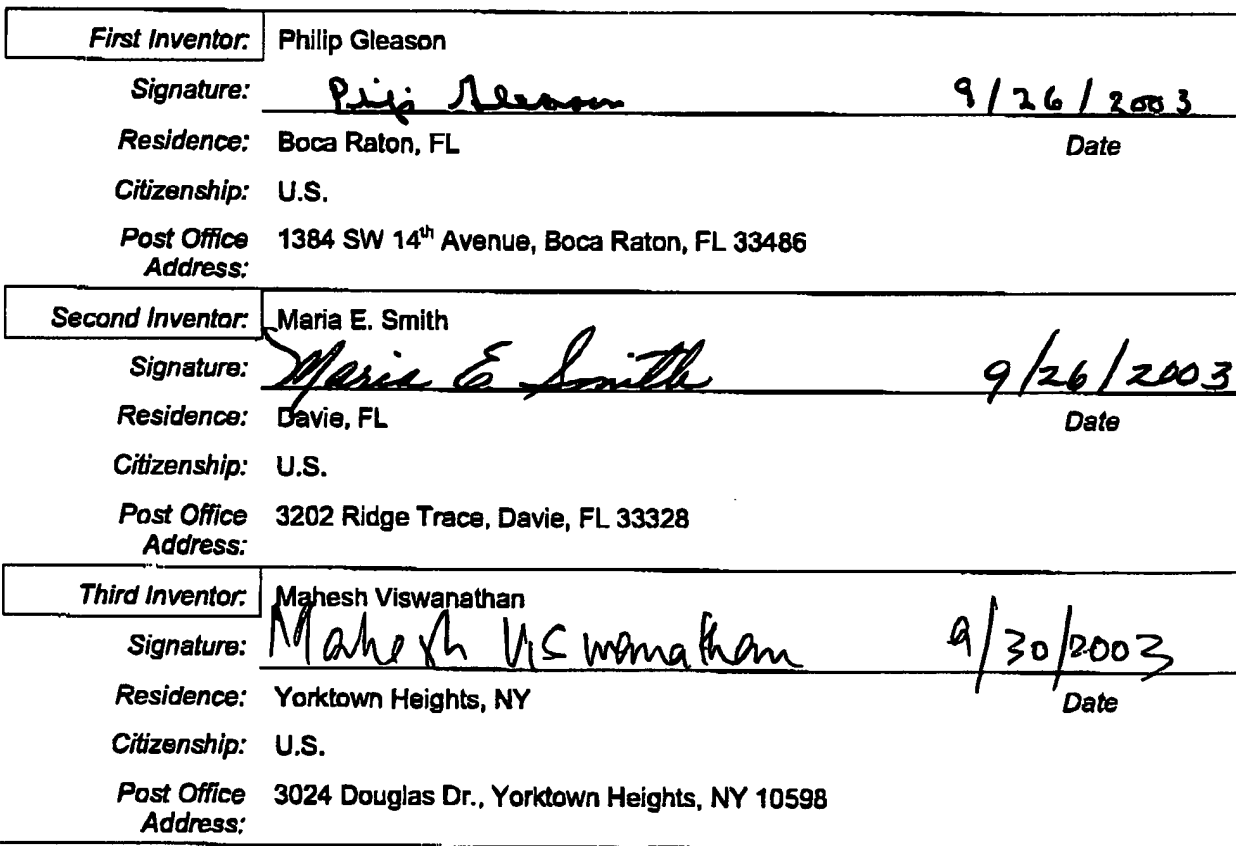 First Inventor: Philip Gleason
Signature: Philip Gleason 9/26/2003
Residence: Boca Raton, FL Date
Citizenship: U.S.
Post Office 1384 SW 14th Avenue, Boca Raton, FL 33486
Address:
Second Inventor: Maria E. Smith
Signature: Maria E Smith 9/26/2003
Residence: Davie, FL Date
Citizenship: U.S.
Post Office 3202 Ridge Trace, Davie, FL 33328
Address:
Third Inventor: Mahesh Viswanathan
Signature: Mahesh Viswanathan 9/30/2003
Residence: Yorktown Heights, NY Date
Citizenship: U.S.
Post Office 3024 Douglas Dr., Yorktown Heights, NY 10598
Address: